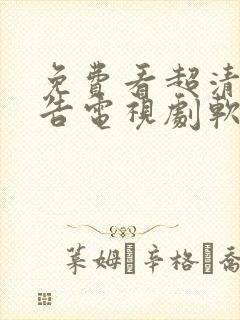 免費看超清
告電視劇軟
葉姆·辛格·喬